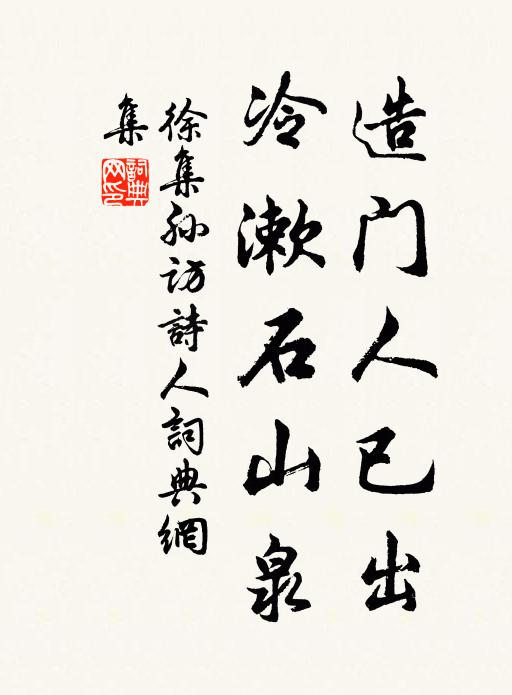 造门人已出
冷漱石山泉
徐集孙访詩人詞典網
集
詞典网印